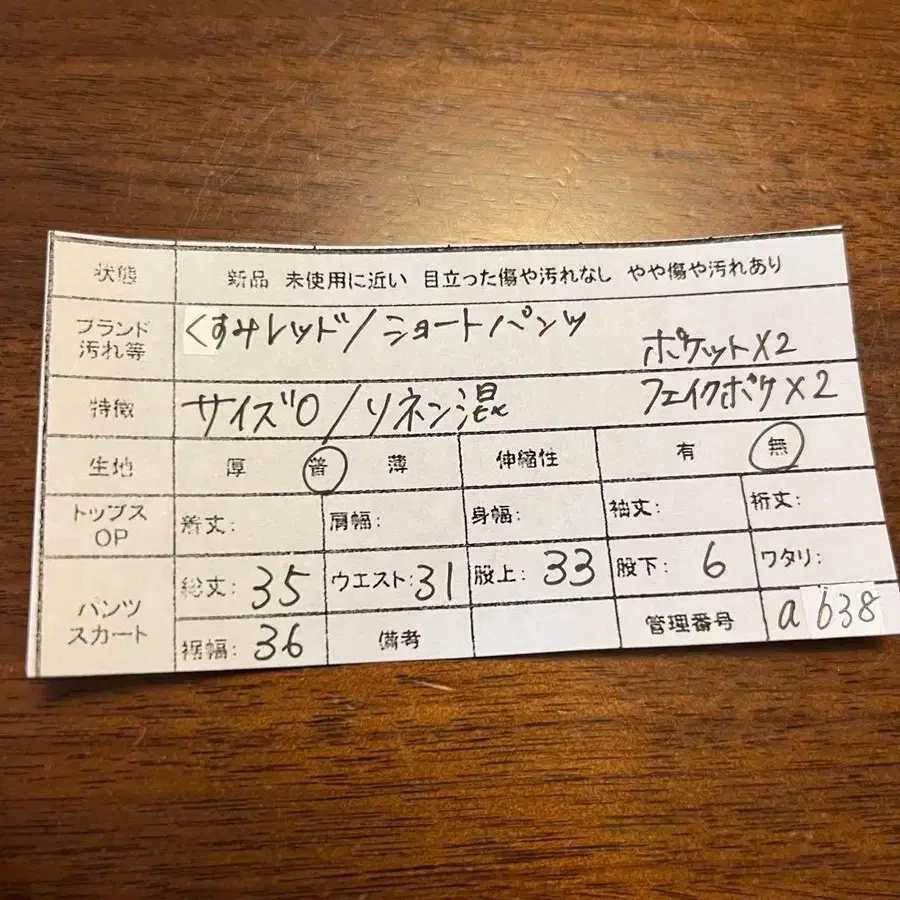 状態 新品 未使用に近い 目立った傷や汚れなし やや傷や汚れあり
ブランド 汚れ等 くすみレッド/ショートパンツ
ポケット×2
特徴 サイズ0/リネン混 フェイクポケ×2
生地 厚 普 薄 伸縮性 有 無
トップス OP 着丈: 肩幅: 身幅: 袖丈: 裄丈:
パンツ スカート 総丈: 35 ウエスト: 31 股上: 33 股下: 6 ワタリ:
裾幅: 36 備考 管理番号 a638